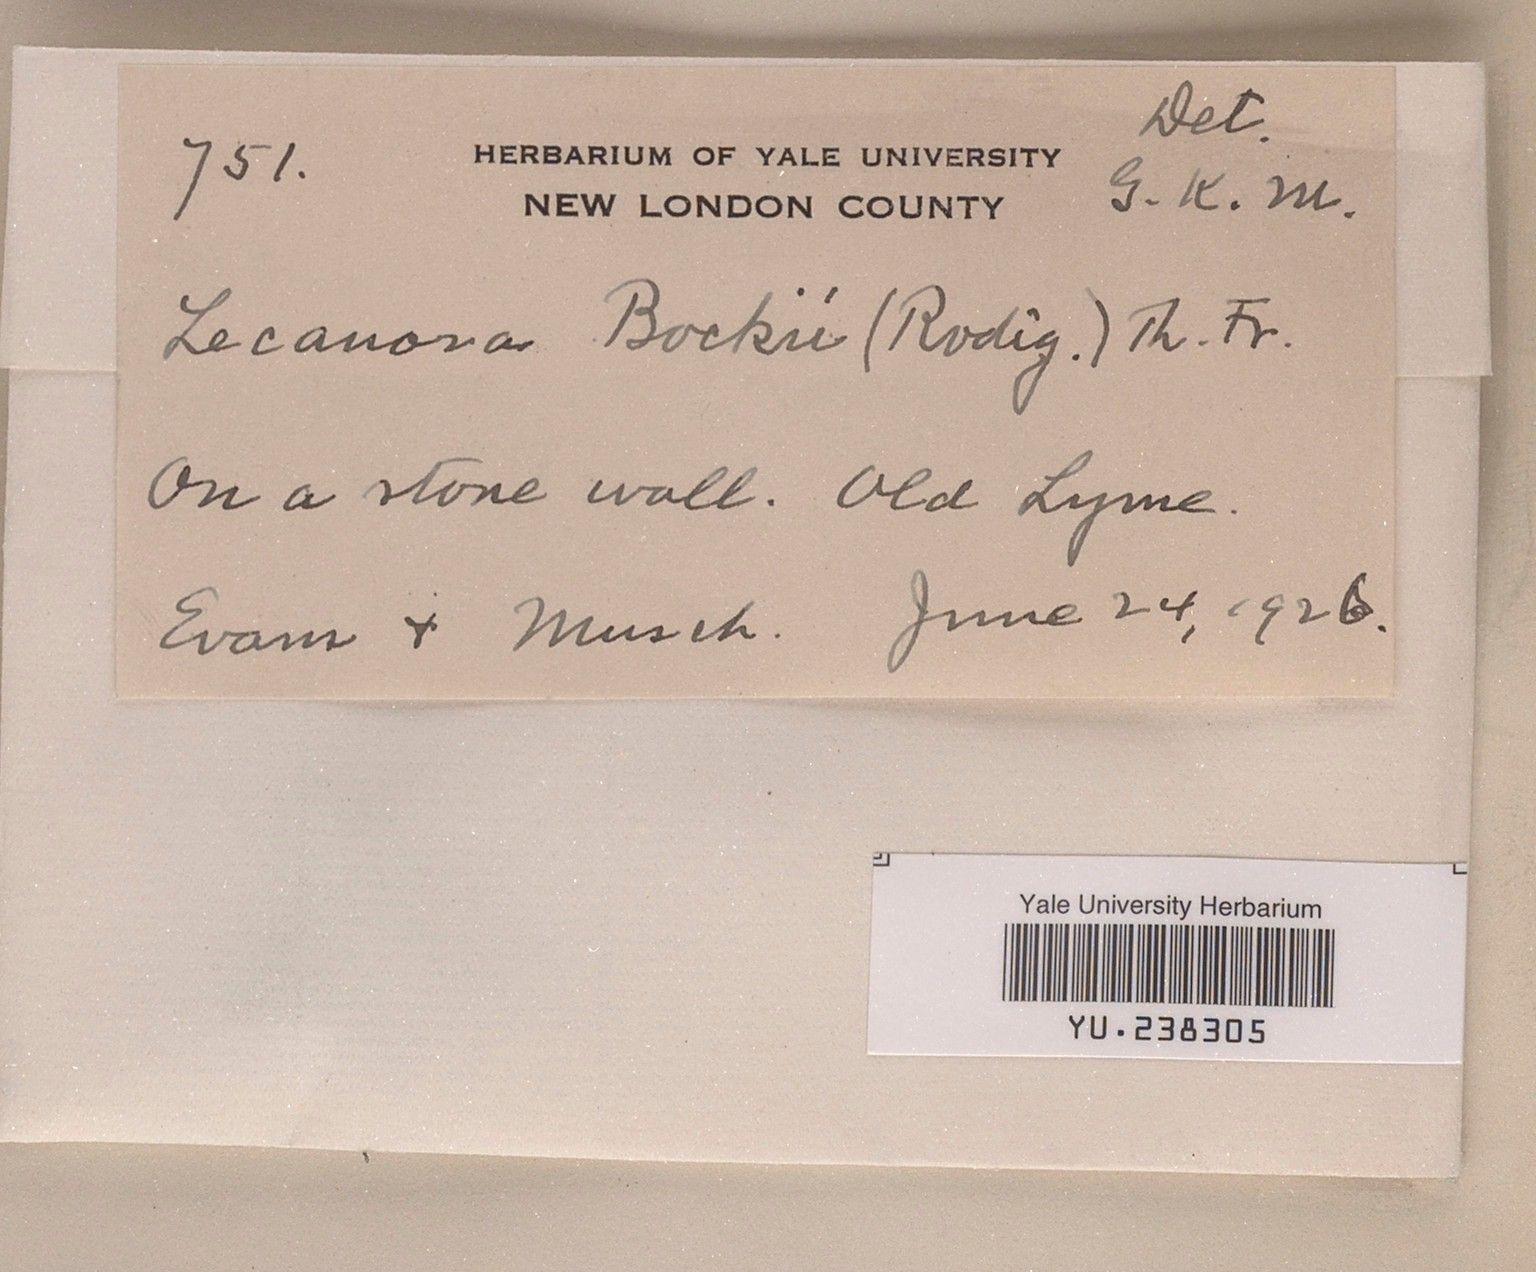 751.
HERBARIUM OF YALE UNIVERSITY
NEW LONDON COUNTY
Det.
G. K. M.
Lecanora Bockii (Rodig.) Th. Fr.
On a stone wall. Old Lyme.
Evans + Musch. June 24, 1926.
Yale University Herbarium
YU.238305